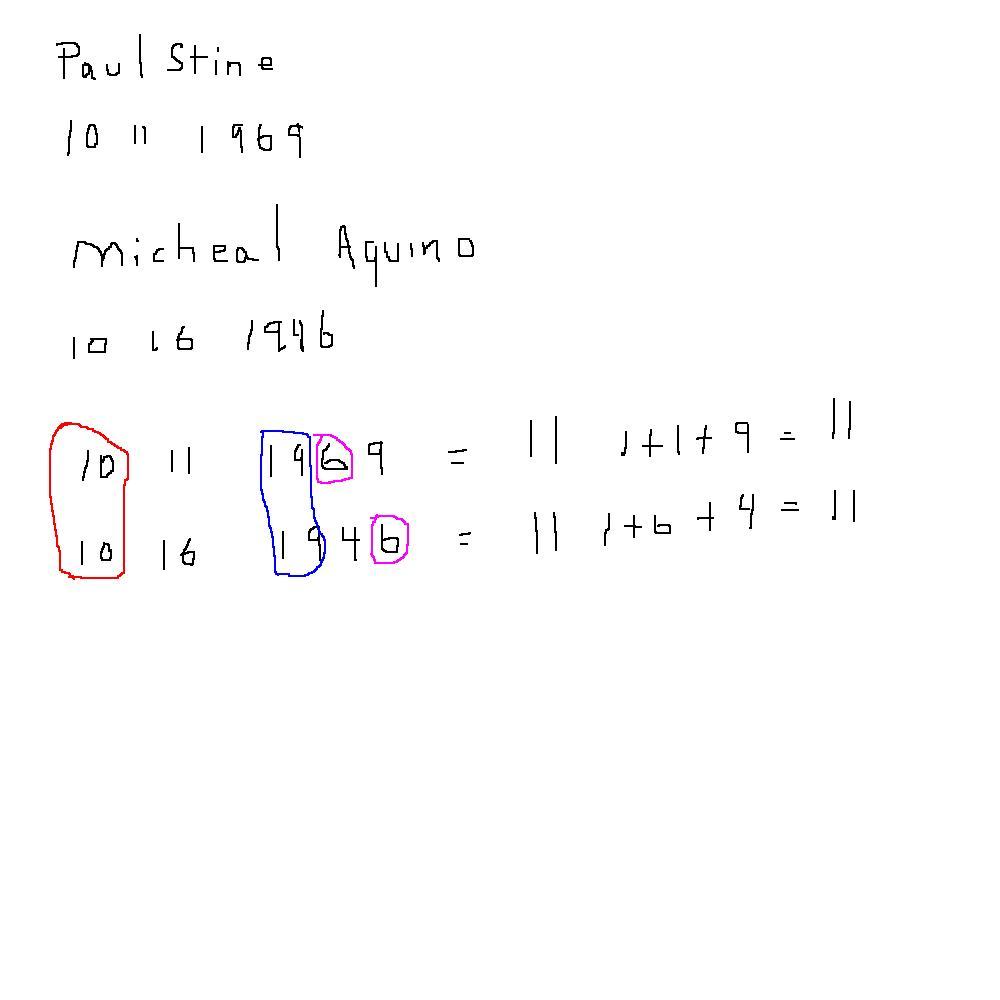 Paul Stine
10 11 1969
Micheal Aquino
10 16 1946
10 11 1969 = 11 1+1+9 = 11
10 16 1946 = 11 1+6+4 = 11